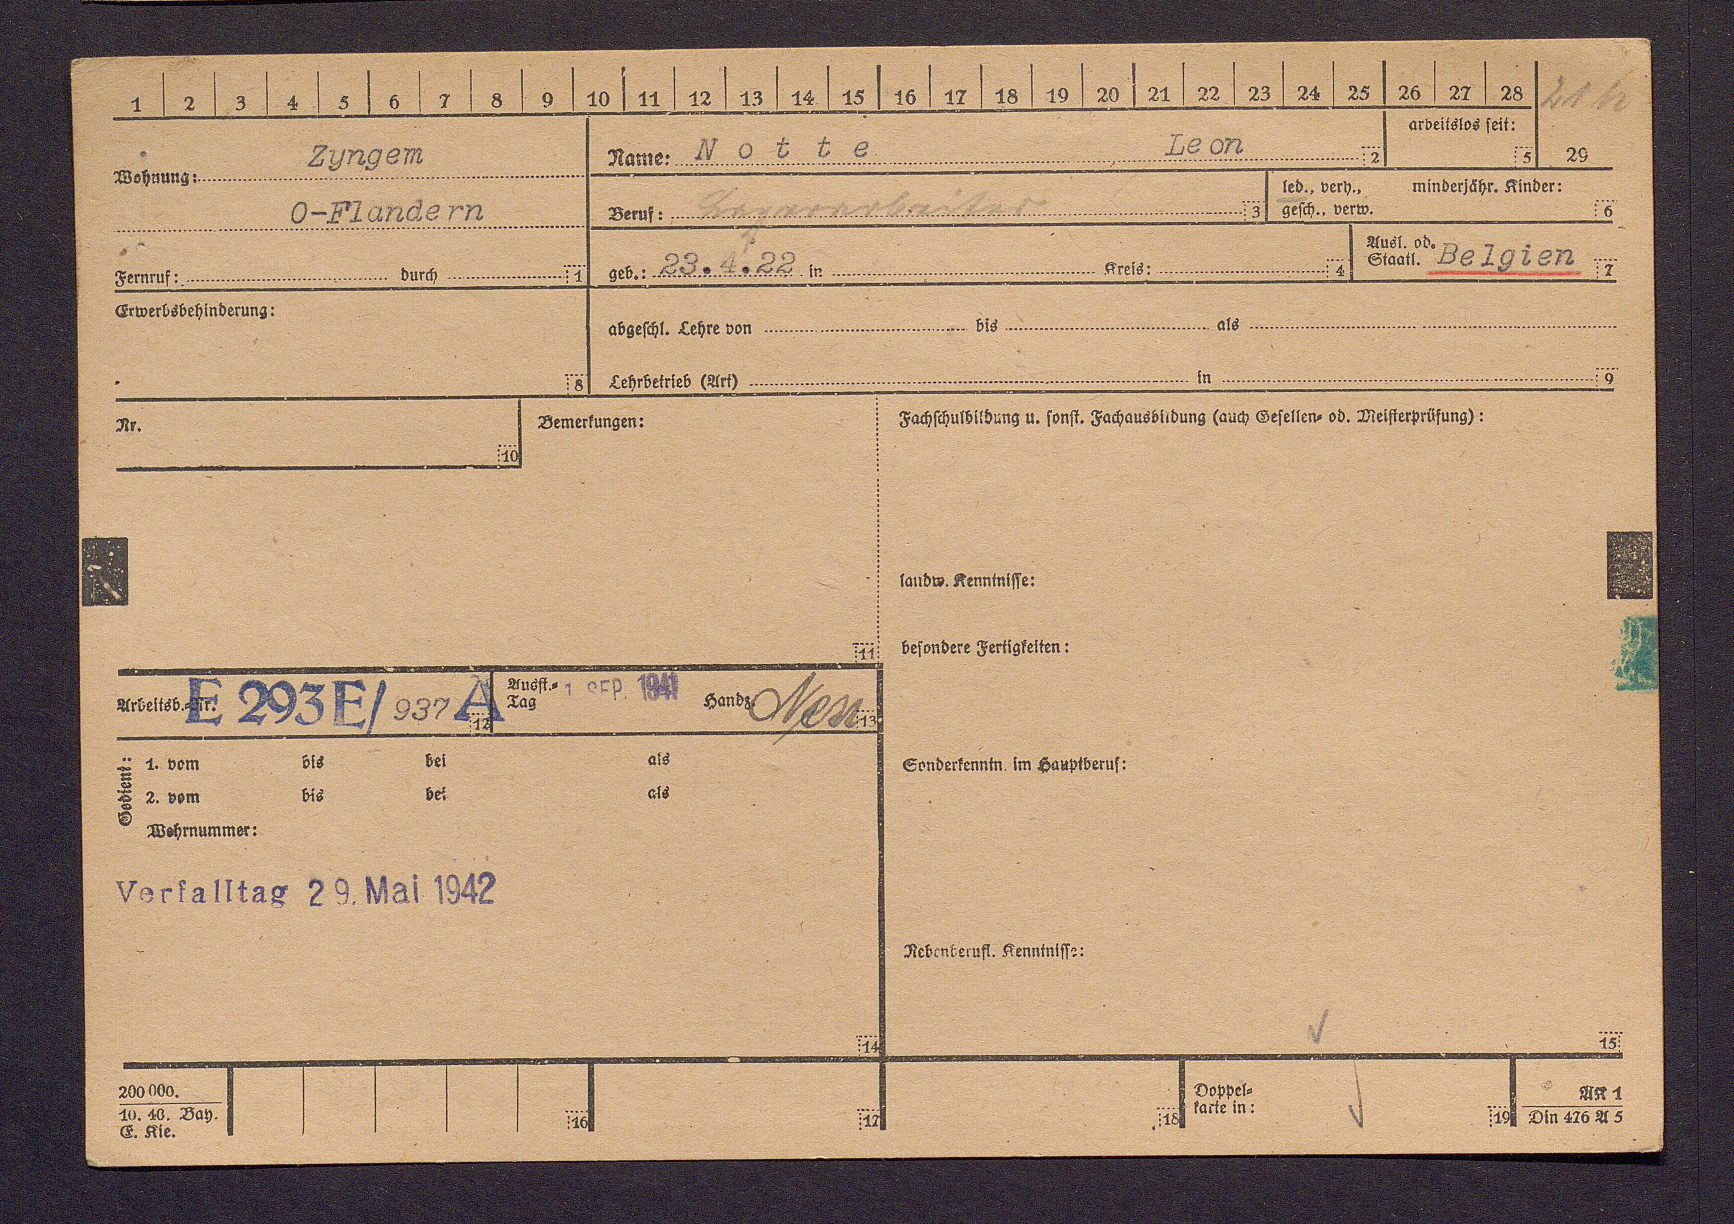 1 2 3 4 5 6 7 8 9 10 11 12 13 14 15 16 17 18 19 20 21 22 23 24 25 26 27 28
Wohnung: Zyngem
O-Flandern
Fernruf: durch 1
Name: Notte Leon 2
arbeitslos seit: 5
29
Beruf: 3
led., verh., gesch., verw. minderjähr. Kinder: 6
geb.: 23.4.22 in Kreis: 4
Ausl. od. Staatl. Belgien 7
Erwerbsbehinderung:
8
abgeschl. Lehre von bis als
Lehrbetrieb (Art) in 9
Nr.
10
Bemerkungen:
11
Fachschulbildung u. sonst. Fachausbildung (auch Gesellen- od. Meisterprüfung):
landw. Kenntnisse:
besondere Fertigkeiten:
Arbeitsb.-Nr. E 293E/ 937 A 12
Ausst.-Tag 1. SEP. 1941 Handz. 13
Sonderkenntn. im Hauptberuf:
Gedient:
1. vom bis bei als
2. vom bis bei als
Wehrnummer:
Verfalltag 29. Mai 1942
14
Nebenberufl. Kenntnisse:
15
200 000.
10. 40. Bay.
E. Kie.
16
17
18
Doppel-
karte in:
19
AK 1
Din 476 A 5